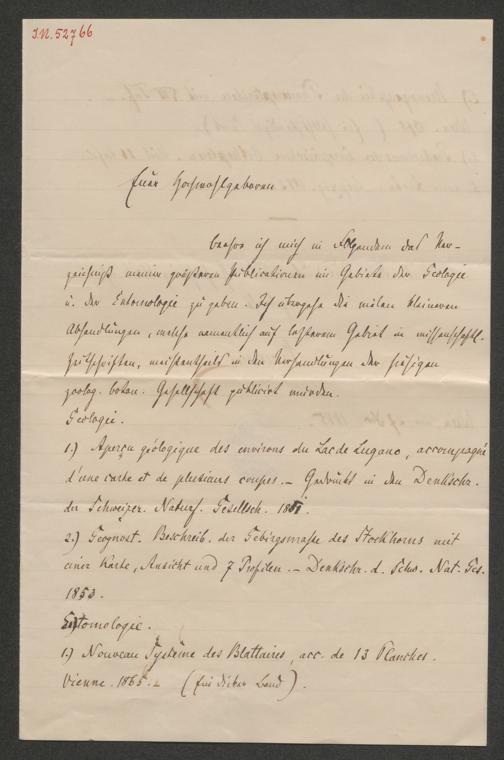 I.N. 52766
Euer Hochwohlgeboren
beehre ich mich in Folgendem das Ver-
zeichniß meiner größeren Publicationen im Gebiete der Geologie
u. der Entomologie zu geben. Ich übergehe die vielen kleineren
Abhandlungen, welche namentlich auf letzterem Gebiet in wissenschaftl.
Zeitschriften, meistentheils in den Verhandlungen der hiesigen
zoolog. botan. Gesellschaft publicirt wurden.
Geologie.
1.) Aperçu géologique des environs du Lac de Lugano, accompagné
d'une carte et de plusieurs coupes. – Gedruckt in den Denkschr.
der Schweizer. Naturf. Gesellsch.
2.) Geognost. Beschreib. der Gebirgsmasse des Stockhorns mit
einer Karte, Ansicht und 7 Profilen. – Denkschr. d. Schw. Nat. Ges.
1853.
Entomologie.
1.) Nouveau Système des Blattaires, acc. de 13 Planches.
Vienne. 1865. (Ein dicker Band).